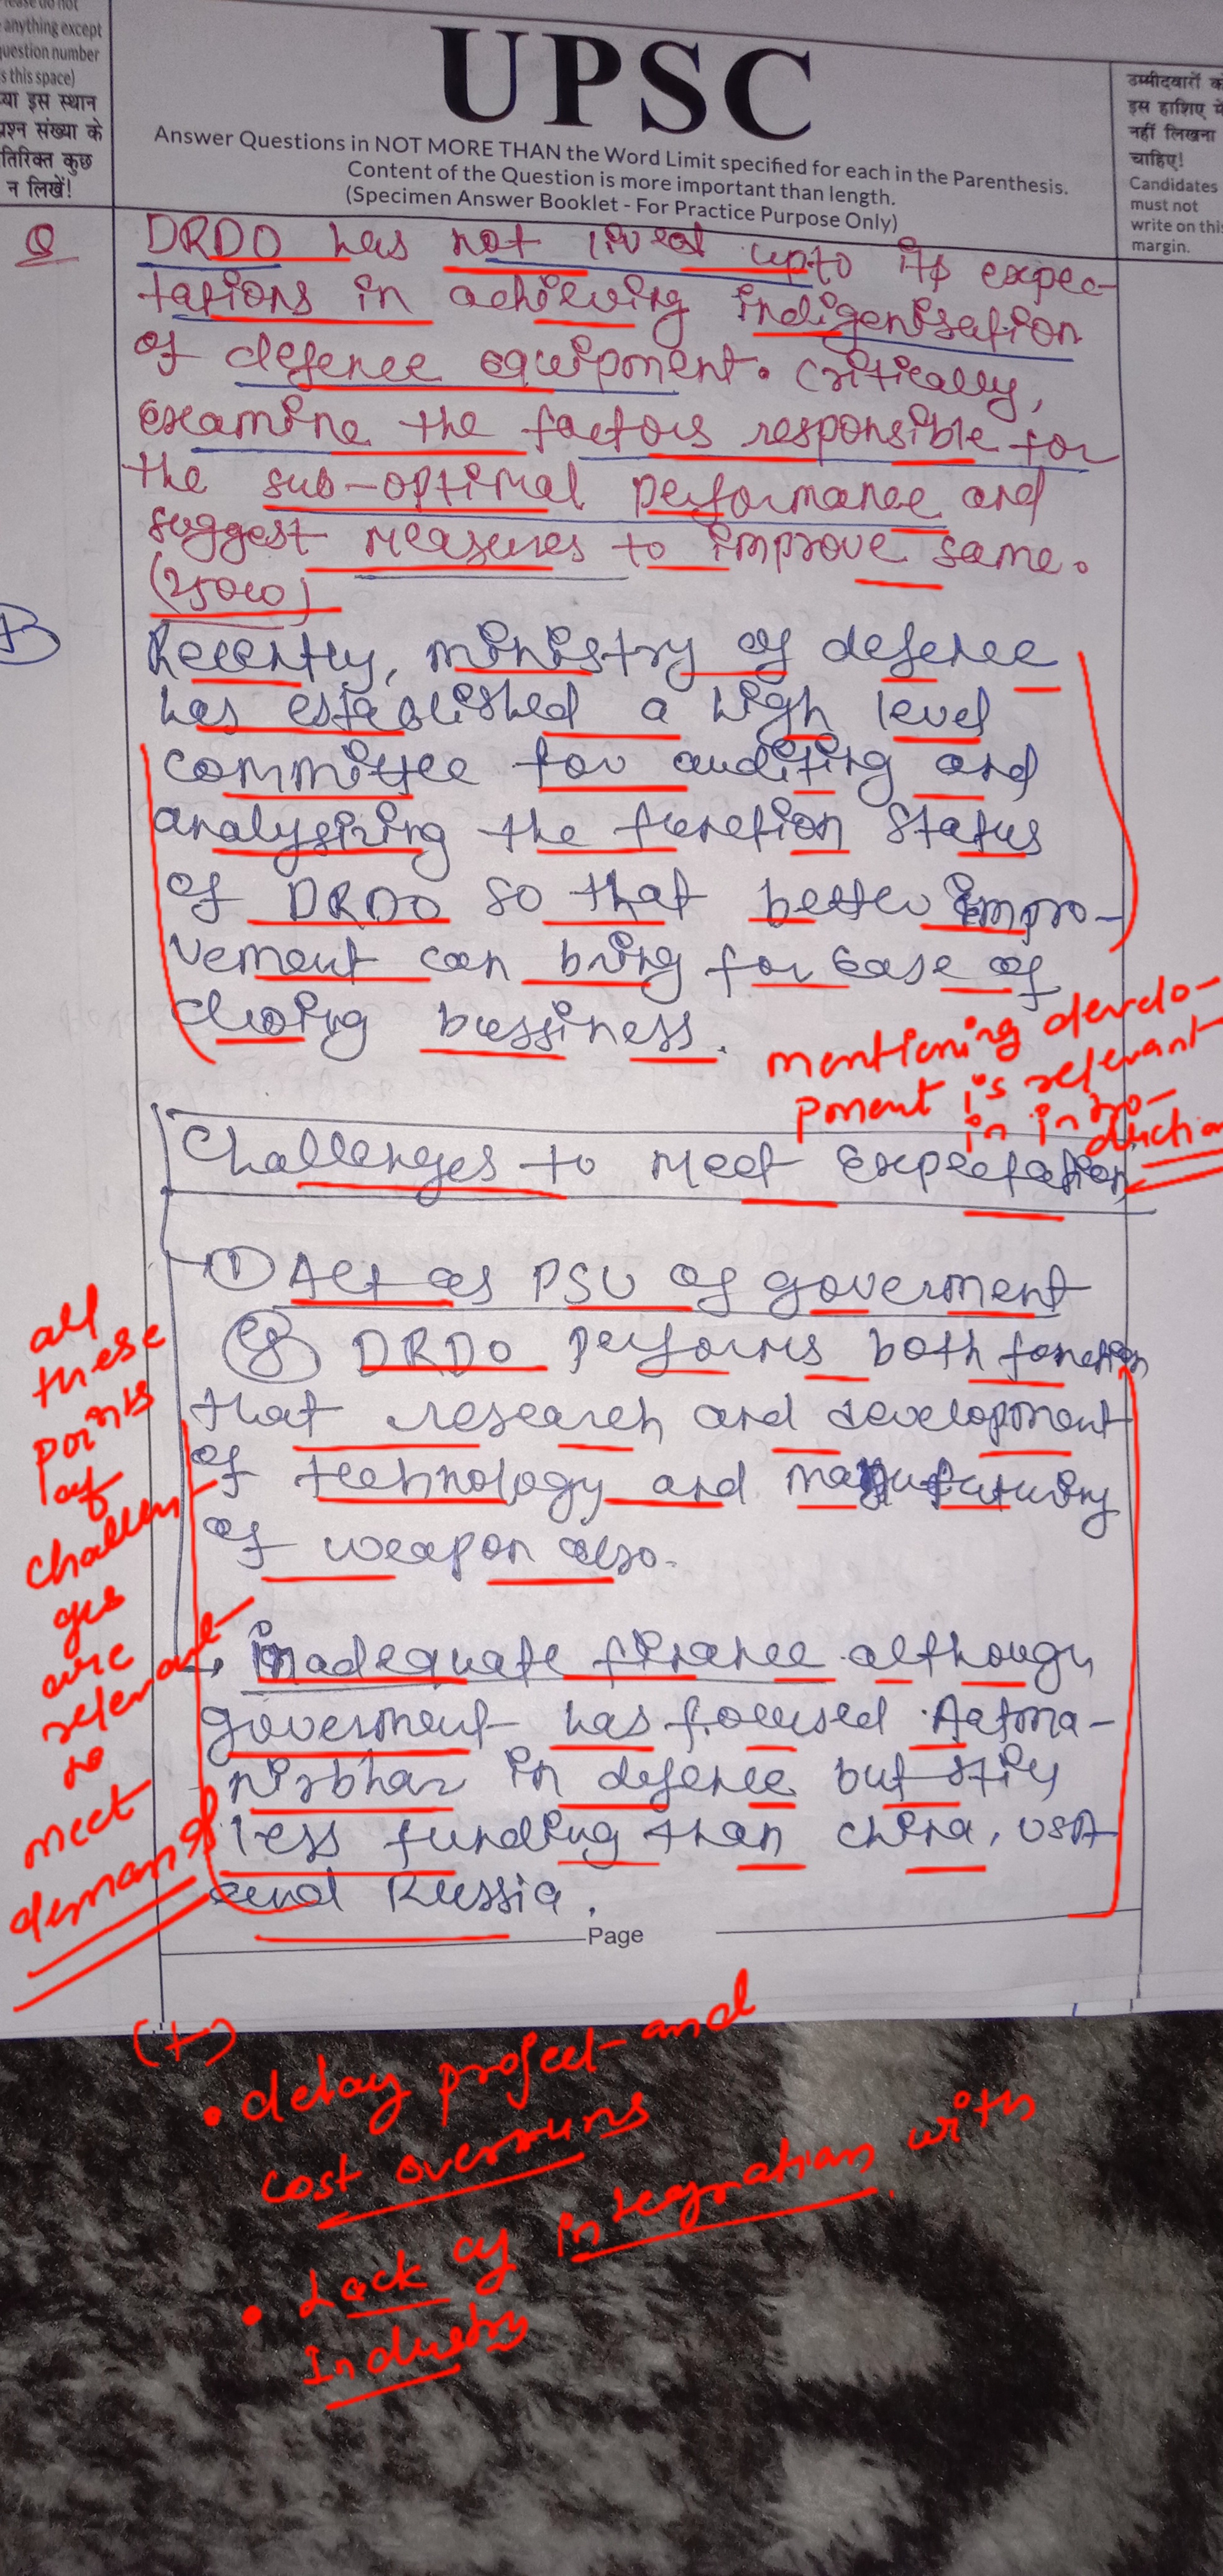 lease do not
anything except
question number
s this space)
या इस स्थान
प्रश्न संख्या के
तिरिक्त कुछ
न लिखें!
UPSC
Answer Questions in NOT MORE THAN the Word Limit specified for each in the Parenthesis.
Content of the Question is more important than length.
(Specimen Answer Booklet - For Practice Purpose Only)
उम्मीदवारों को
इस हाशिए में
नहीं लिखना
चाहिए!
Candidates
must not
write on this
margin.
Q
DRDO has not lived upto its expec-
tations in achieving indigenisation
of defence equipment. critically,
examine the factors responsible for
the sub-optimal performance and
suggest measures to improve same.
(250w)
Recently, ministry of defence
has established a high level
committee for auditing and
analysizing the function status
of DRDO so that better impro-
vement can bring for ease of
doing bussiness.
mentioning devlo-
pment is relevant
in intro-
duction
Challenges to meet Expectation
① Act as PSU of goverment
eg DRDO performs both function
that research and development
of technology and manufuturing
of weapon also.
→ Inadequate finance although
goverment has focused Aatma-
nirbhar in defence but still
less funding than china, USA
and Russia.
all
these
points
of
challen-
ges
are
relevant
to
meet
demand
Page
(+)
• delay project and
cost overruns
• Lack of integration with
Industry